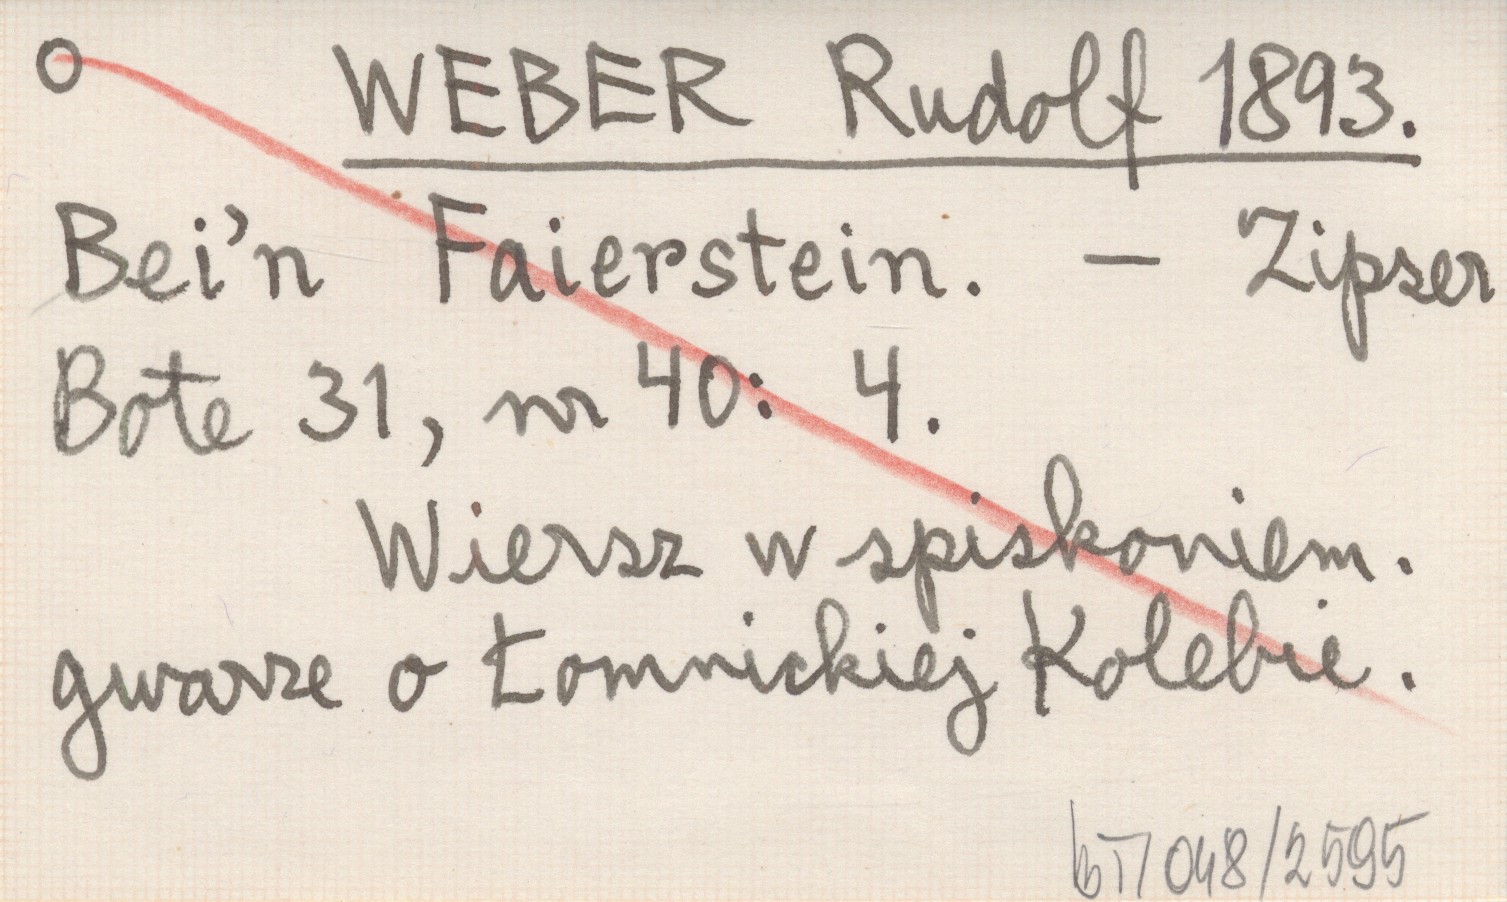 O WEBER Rudolf 1893.
Bei'n Faierstein. — Zipser
Bote 31, nr 40: 4.
Wiersz w spiskoniem.
gwarze o Łomnickiej Kolebie.
bT/048/2595